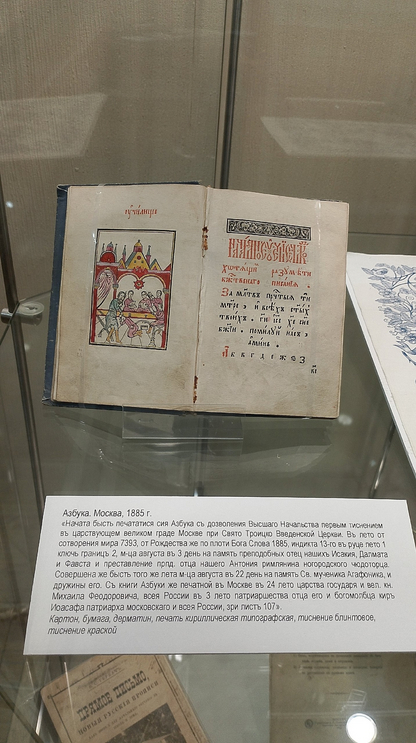 училище
хотящим разумѣти
божественаго писания
За млтвъ пречтыѧ ти
мтре, и всѣхъ стыхъ
твоихъ. ги їсе хе сне
бжїи. помилуй насъ.
аминь.
А в в г д е ж ѕ з
Азбука. Москва, 1885 г.
«Начата бысть печататися сия Азбука съ дозволения Высшаго Начальства первым тиснением
въ царствующем великом граде Москве при Свято Троицко Введенской Церкви. Въ лето от
сотворения мира 7393, от Рожества же по плоти Бога Слова 1885, индикта 13-го въ руце лето 1
ключь границъ 2, м-ца августа въ 3 день на память преподобных отец наших Исакия, Далмата
и Фавста и преставление прпд. отца нашего Антония римлянина ногородского чюдоторца.
Совершена же бысть того же лета м-ца августа въ 22 день на память Св. мученика Агафоника, и
дружины его. Съ книги Азбуки же печатной въ Москве въ 24 лето царства государя и вел. кн.
Михаила Феодоровича, всея России въ 3 лето патриаршества отца его и богомолбца киръ
Иоасафа патриарха московскаго и всея России, зри листъ 107».
Картон, бумага, дерматин, печать кириллическая типографская, тиснение блинтовое,
тиснение краской
ПРЯМОЕ ПИСЬМО,